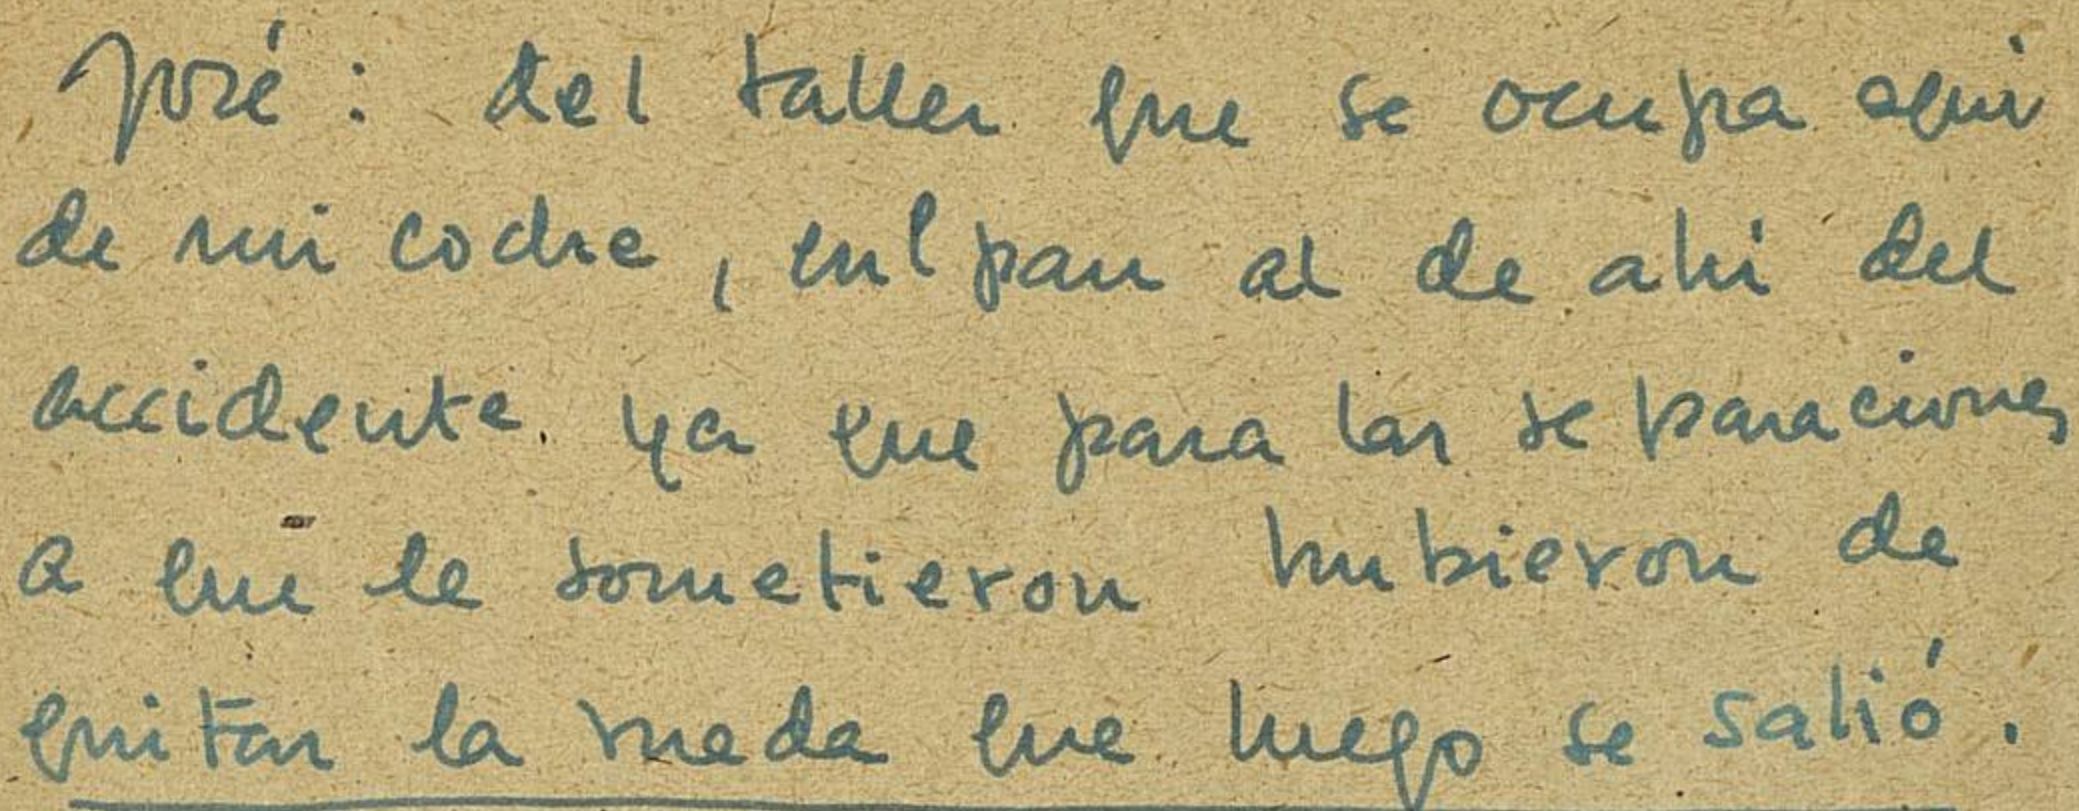 José: del taller que se ocupa aqui
de mi coche, culpan al de ahi del
accidente ya que para las reparaciones
a que le sometieron hubieron de
quitar la rueda que luego se salió.